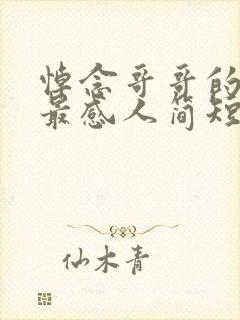 悼念哥哥的
最感人简短
仙木青